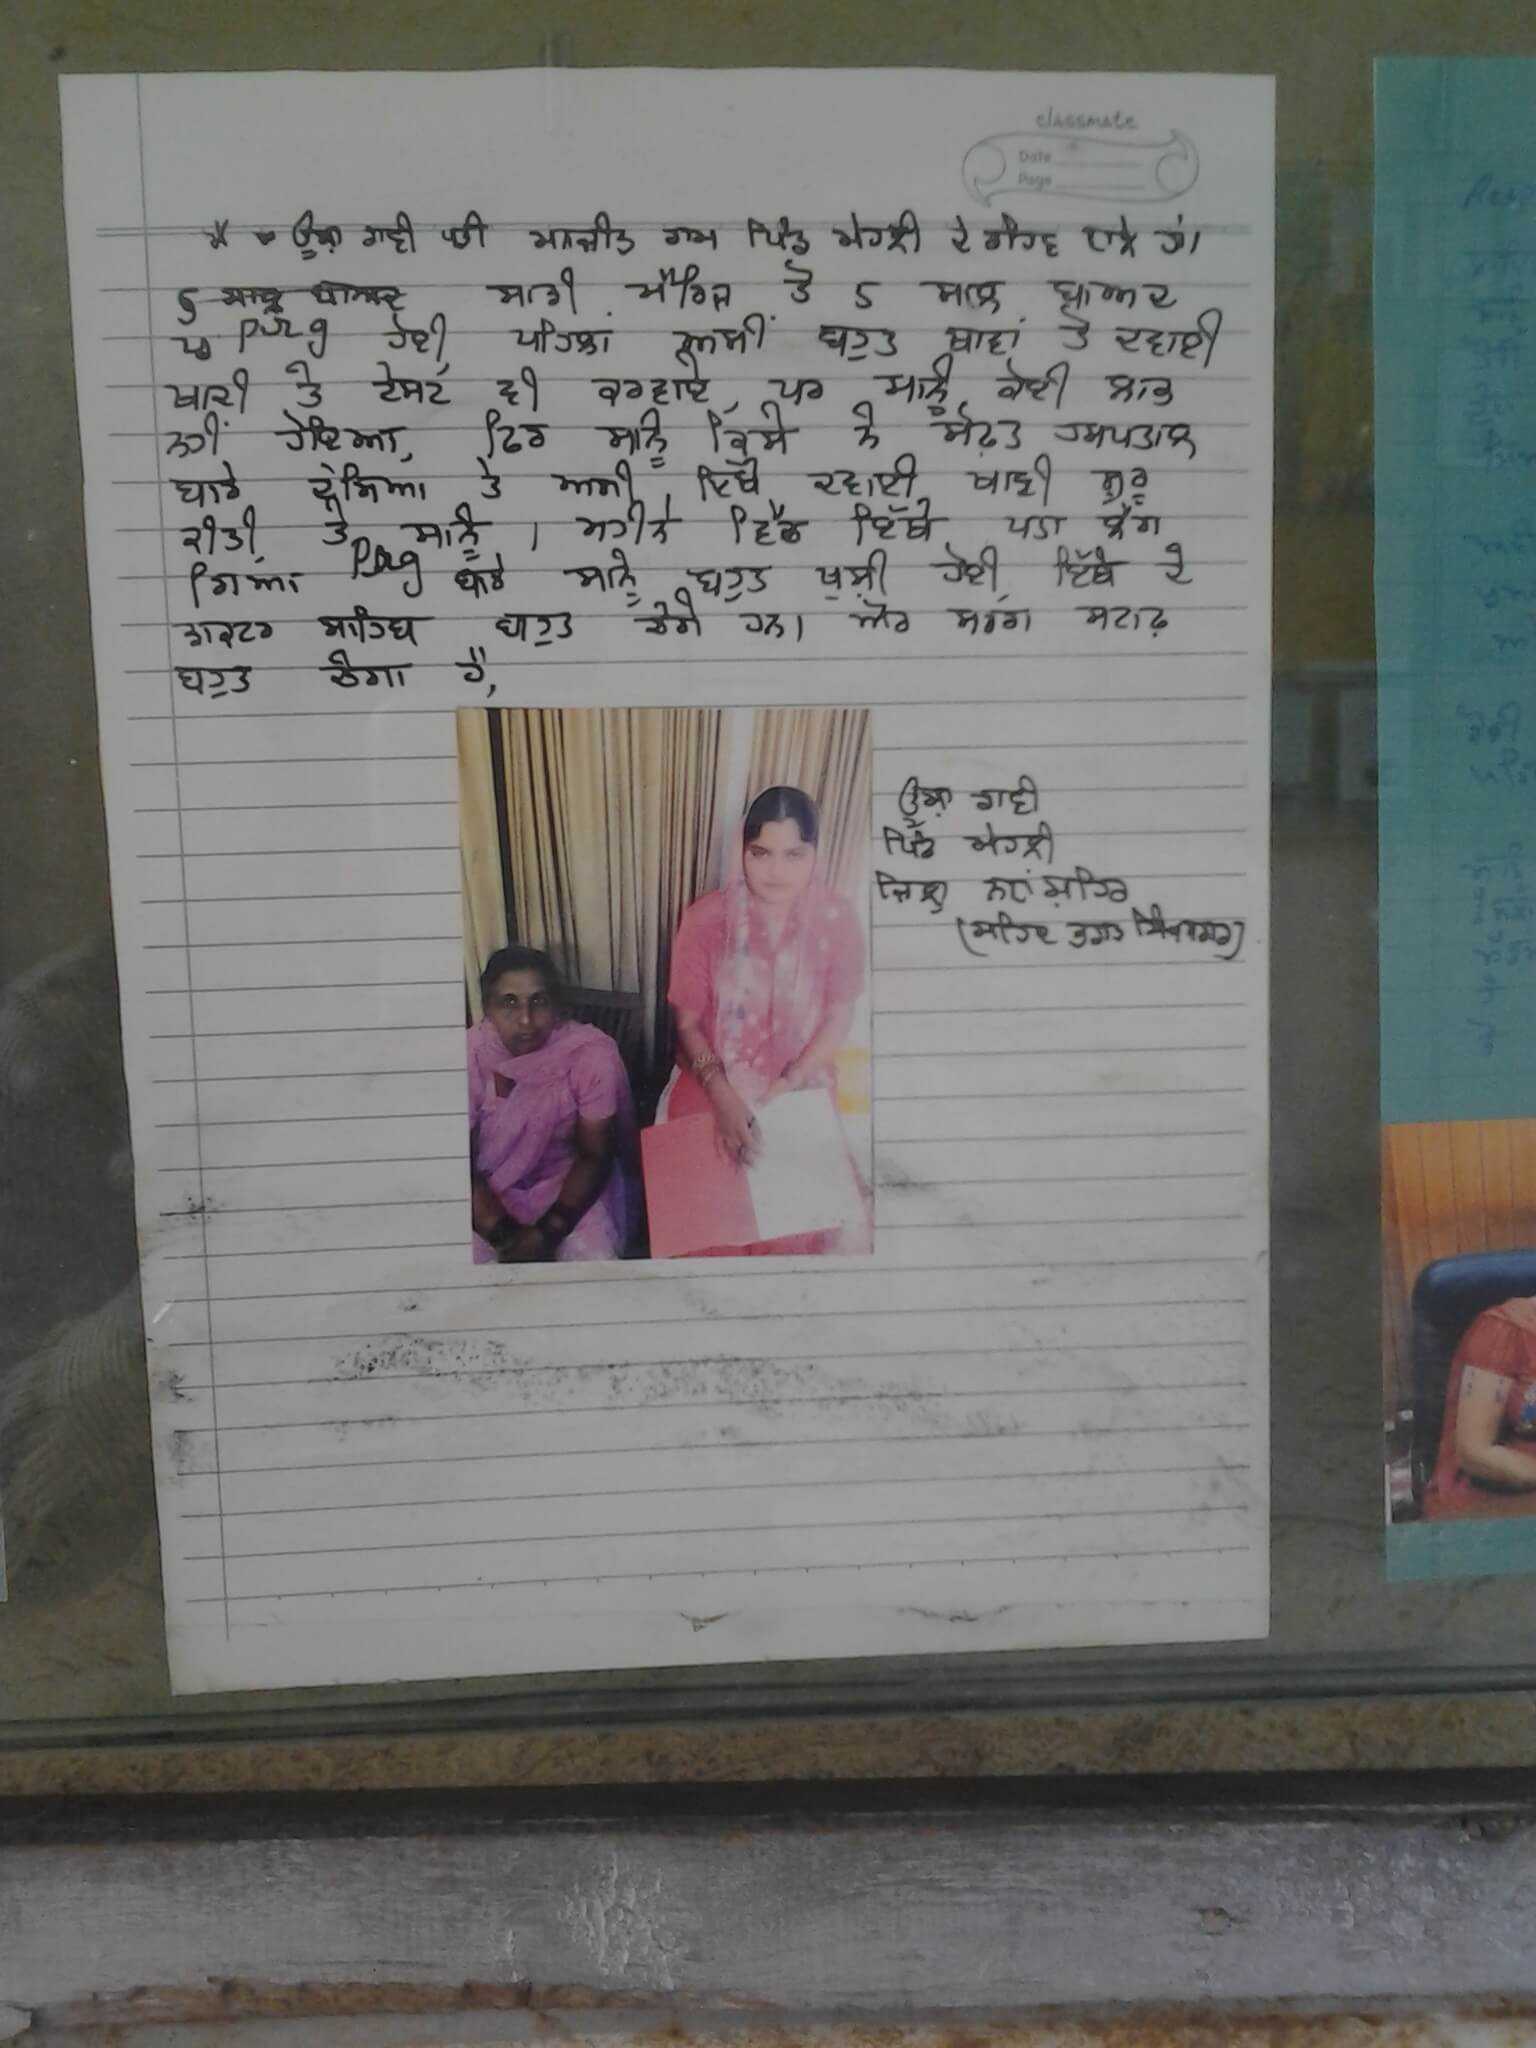 classmate
Date
Page
ਊਸ਼ਾ ਰਾਣੀ ਪਤੀ ਮਨਜੀਤ ਰਾਮ ਪਿੰਡ ਮੇਹਲੀ ਦੇ ਰਹਿਣ ਵਾਲੇ ਹਾਂ।
ਸਾਡੀ ਮੈਰਿਜ ਤੋਂ 5 ਸਾਲ ਬਾਅਦ
Preg ਹੋਈ, ਪਹਿਲਾਂ ਅਸੀਂ ਬਹੁਤ ਥਾਵਾਂ ਤੇ ਦਵਾਈ
ਖਾਦੀ ਤੇ ਟੇਸਟ ਵੀ ਕਰਵਾਏ, ਪਰ ਸਾਨੂੰ ਕੋਈ ਲਾਭ
ਨਹੀਂ ਹੋਇਆ, ਫਿਰ ਸਾਨੂੰ ਕਿਸੇ ਨੇ ਹਸਪਤਾਲ
ਬਾਰੇ ਦੱਸਿਆ ਤੇ ਅਸੀਂ ਇੱਥੇ ਦਵਾਈ ਖਾਣੀ ਸ਼ੁਰੂ
ਕੀਤੀ, ਤੇ ਸਾਨੂੰ 1 ਮਹੀਨੇ ਵਿੱਚ ਇੱਥੇ ਪਤਾ ਲੱਗ
ਗਿਆ Preg ਬਾਰੇ ਸਾਨੂੰ ਬਹੁਤ ਖੁਸ਼ੀ ਹੋਈ, ਇੱਥੇ ਦੇ
ਡਾਕਟਰ ਸਾਹਿਬ ਬਹੁਤ ਚੰਗੇ ਹਨ। ਔਰ ਸਾਰਾ ਸਟਾਫ਼
ਬਹੁਤ ਚੰਗਾ ਹੈ,
ਊਸ਼ਾ ਰਾਣੀ
ਪਿੰਡ ਮੇਹਲੀ
ਜਿਲ੍ਹਾ ਨਵਾਂਸ਼ਹਿਰ
(ਸ਼ਹਿਦ ਭਗਤ ਸਿੰਘ ਨਗਰ)